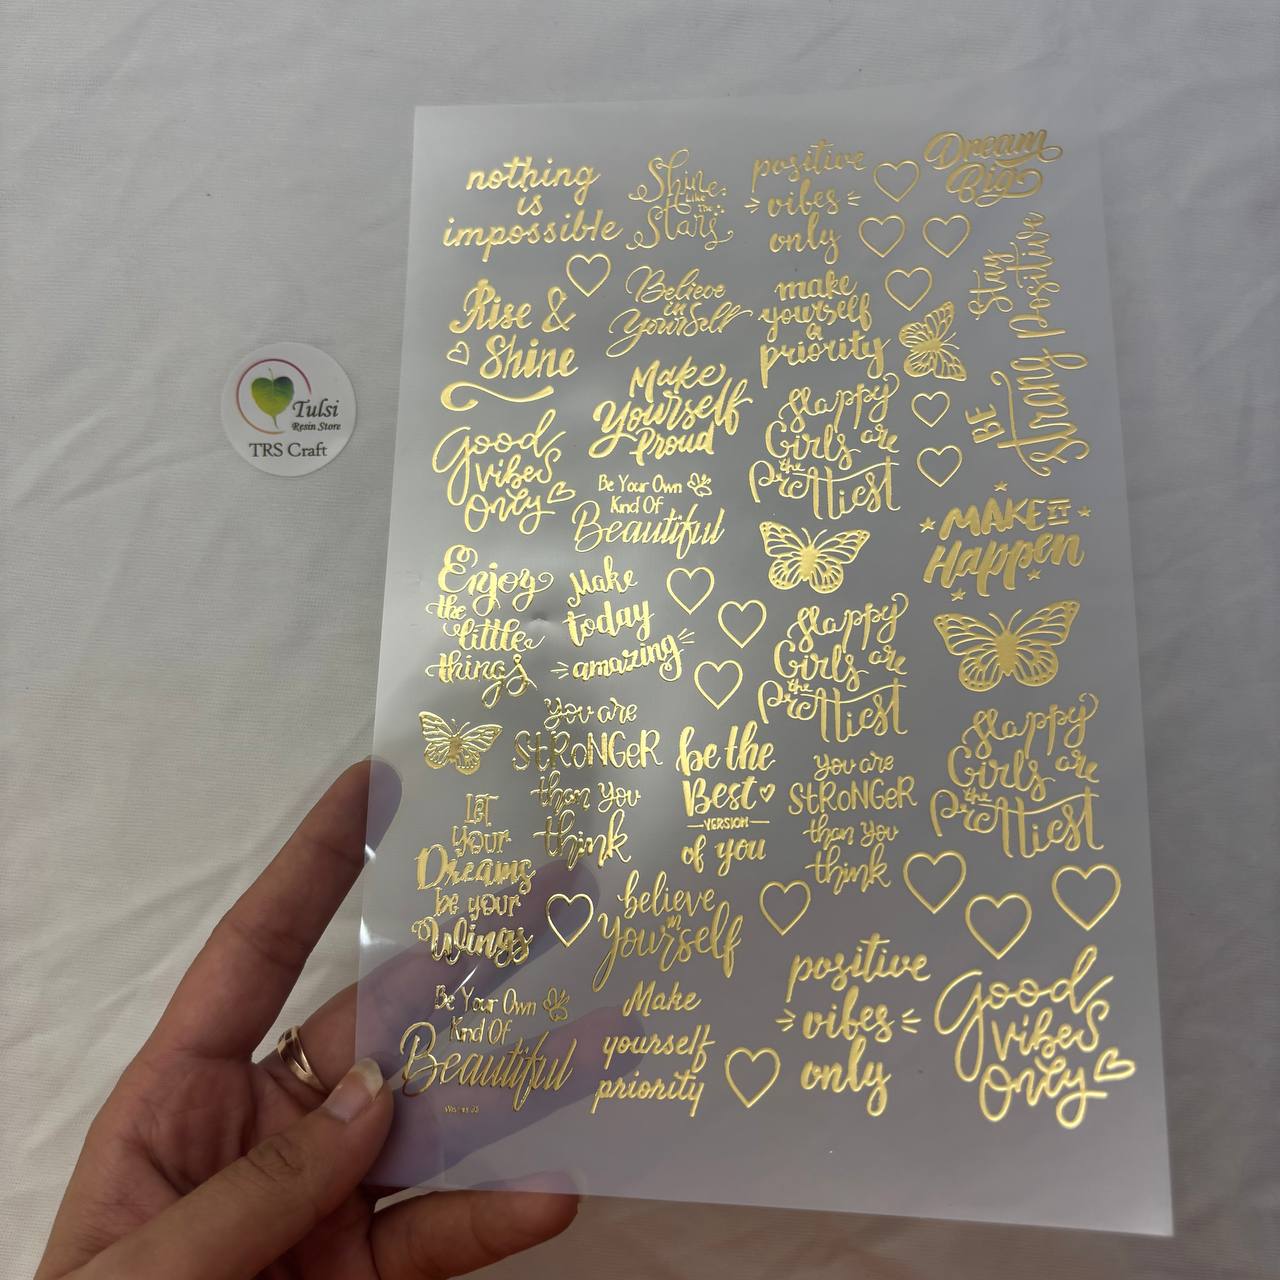 nothing
is
impossible
Shine
Like The
Stars
positive
vibes
only
Dream
Big
Stay
Positive
Rise &
Shine
Believe
in
Yourself
make
yourself
a
priority
BE
Strong
Make
Yourself
Proud
Happy
Girls are
the
Prettiest
Good
vibes
Only
Be Your Own
Kind Of
Beautiful
MAKE IT
Happen
Enjoy
the
little
things
Make
today
amazing
Happy
Girls are
the
Prettiest
You are
STRONGER
than you
think
be the
Best
VERSION
of you
you are
STRONGER
than you
think
Happy
Girls are
the
Prettiest
LET
your
Dreams
be your
Wings
believe
in
Yourself
Be Your Own
Kind Of
Beautiful
Make
yourself
priority
positive
vibes
only
Good
vibes
Only
Tulsi
Resin Store
TRS Craft